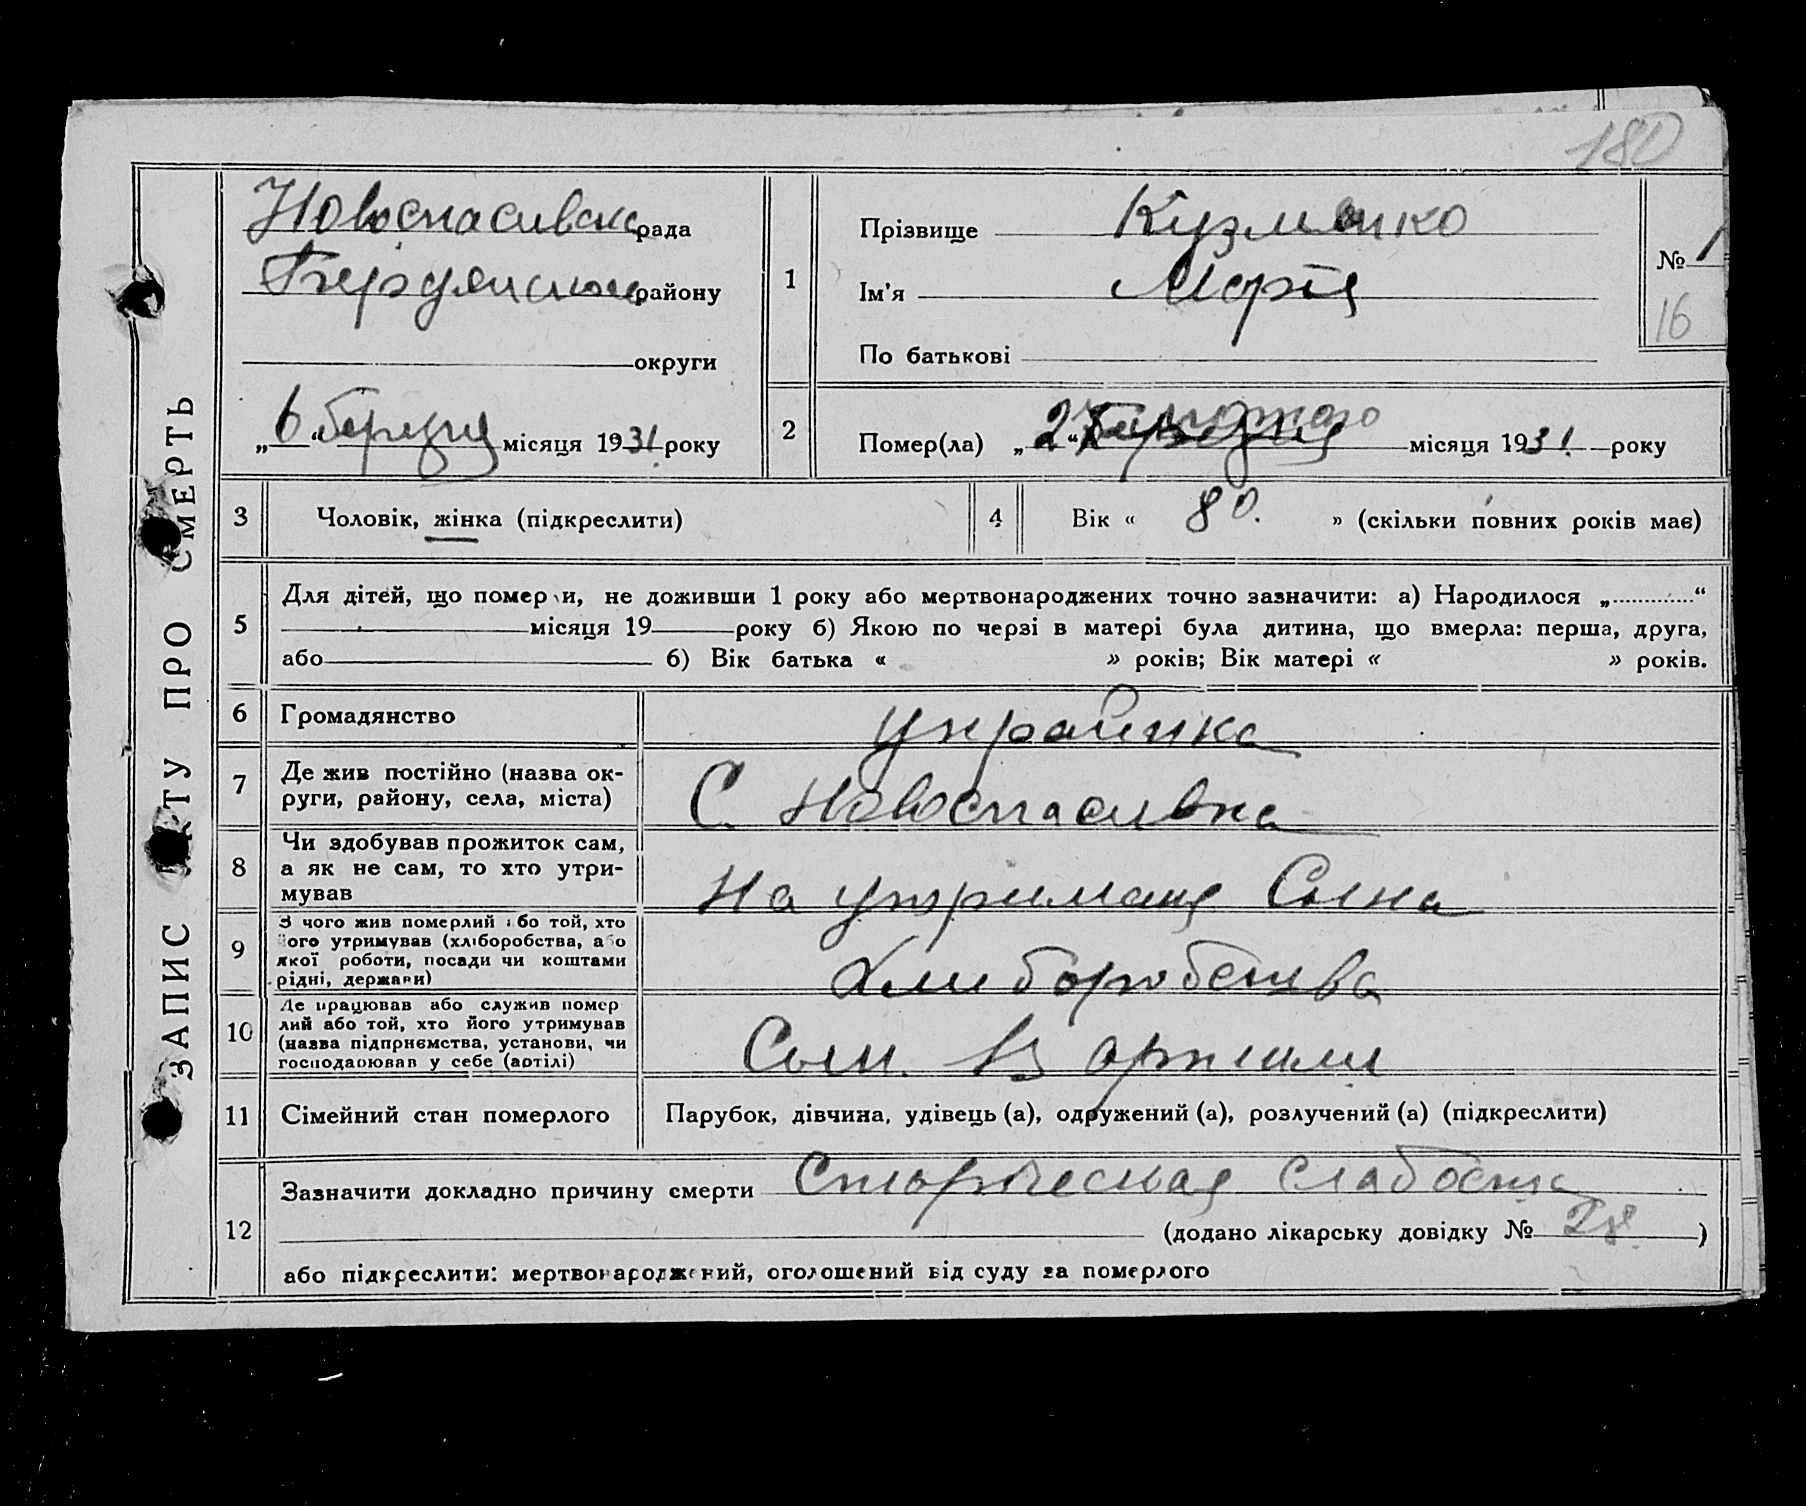 180
ЗАПИС АКТУ ПРО СМЕРТЬ
Новоспасивска рада
Бердянськ району
округи
„6“ березня місяця 1931 року
1
Прізвище Кузменко
Ім'я Марія
По батькові
№ 1
16
2
Помер(ла) „27“ лютого березня місяця 1931 року
3
Чоловік, жінка (підкреслити)
4
Вік « 80. » (скільки повних років має)
5
Для дітей, що померли, не доживши 1 року або мертвонароджених точно зазначити: а) Народилося „ “
місяця 19 року б) Якою по черзі в матері була дитина, що вмерла: перша, друга,
або б) Вік батька « » років; Вік матері « » років.
6
Громадянство
украинка
7
Де жив постійно (назва ок-
руги, району, села, міста)
С. Новоспасивка
8
Чи здобував прожиток сам,
а як не сам, то хто утри-
мував
На утриманя Сына
9
З чого жив померлий або той, хто
його утримував (хліборобства, або
якої роботи, посади чи коштами
рідні, держави)
Хлиборобства
10
Де працював або служив помер
лий або той, хто його утримував
(назва підприємства, установи, чи
господарював у себе (артілі)
Сын. В артили
11
Сімейний стан померлого
Парубок, дівчина, удівець (а), одружений (а), розлучений (а) (підкреслити)
12
Зазначити докладно причину смерти Старческая слабость
(додано лікарську довідку № 28)
або підкреслити: мертвонароджений, оголошений від суду за померлого